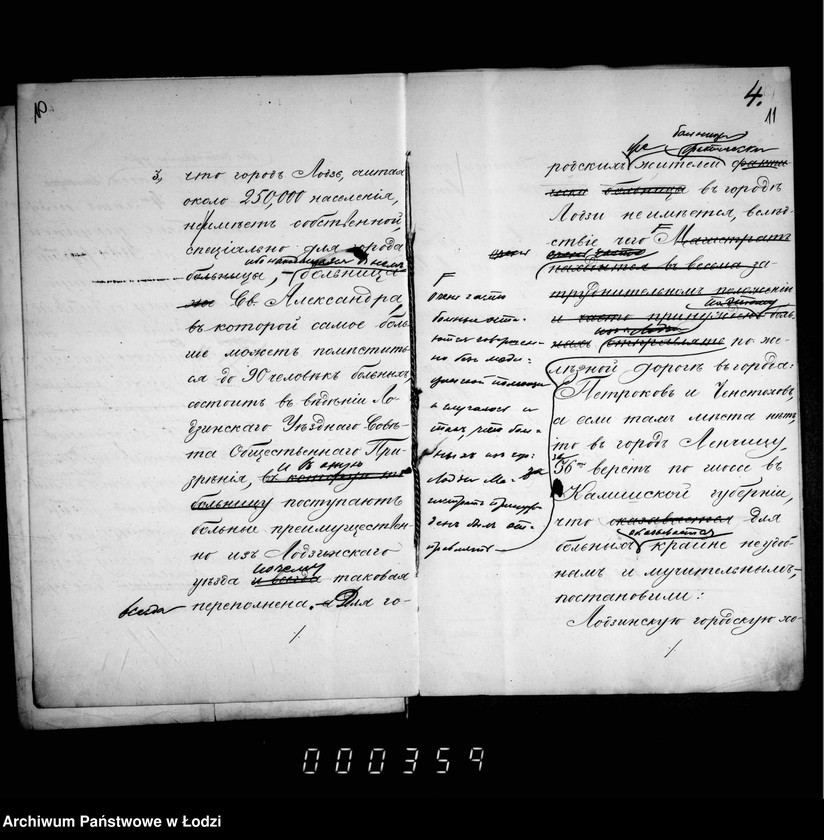 10
3, что городъ Лодзь, считая
около 250,000 населенія,
неимѣетъ собственной,
спеціально для города
больницы, – больница
Св. Александра,
въ которой самое боль-
ше можетъ помѣстить-
ся до 90 человѣкъ больныхъ,
состоитъ въ вѣдѣніи Ло-
дзинскаго Уѣзднаго Совѣ-
та Общественнаго При-
и въ оную
зрѣнія, въ которую же
больницу поступаютъ
больные преимуществен-
но изъ Лодзинскаго
почему
уѣзда и всегда таковая
всегда переполнена. – Для го-
4.
11
больницы
фактически
родскихъ жителей факти-
чески больницы въ городѣ
Лодзи не имѣется, вслѣд-
ствіе чего Магистратъ
находится въ весьма за-
труднительномъ положеніи
и часто принужденъ боль-
ныхъ отправлять по же-
лѣзной дорогѣ въ города:
Петроковъ и Ченстоховъ,
а если тамъ мѣста нѣтъ,
то въ городъ Ленчицу,
за 56 верстъ по шоссе въ
Калишской губерніи,
что оказывается для
оказывается
больныхъ крайне неудоб-
нымъ и мучительнымъ, –
постановили:
Лодзинскую городскую хо-
очень часто
больные оста-
ются совершен-
но безъ меди-
цинской помощи
и случалось и
такъ, что
Лодзи Ма-
гистратъ принуж-
денъ былъ от-
правлять
000359
Archiwum Państwowe w Łodzi